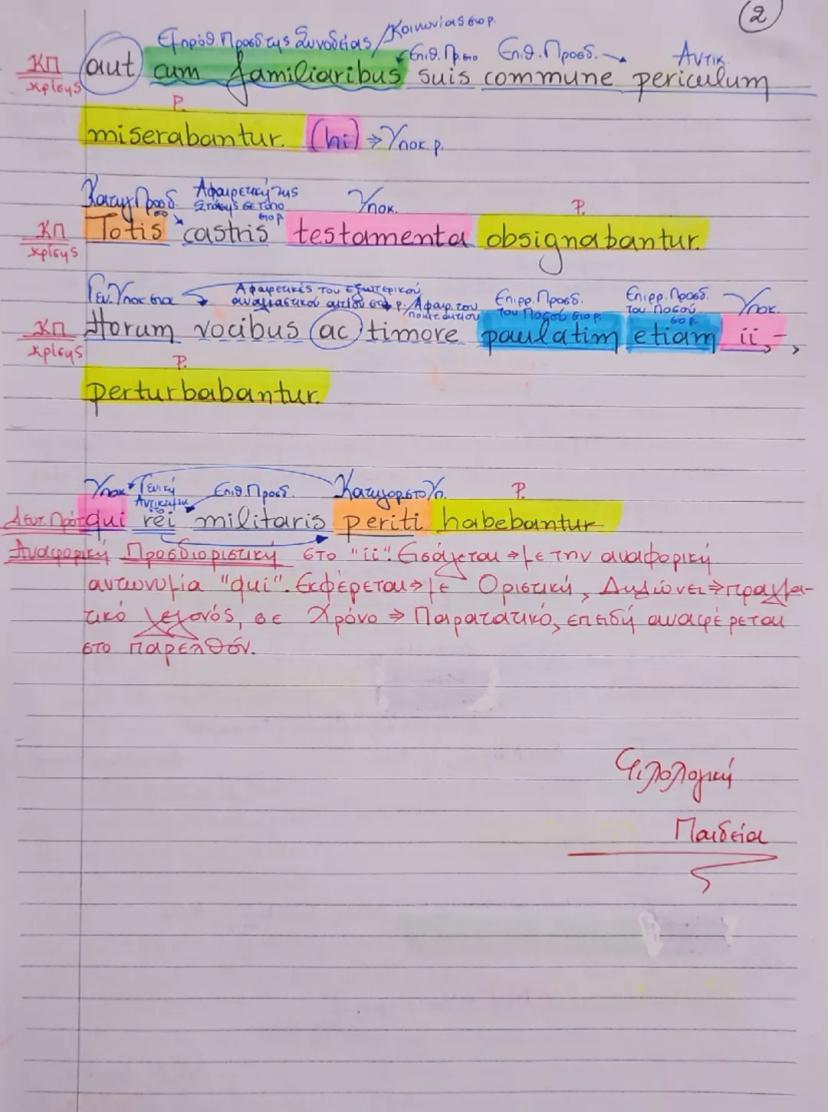 2
Εμπρόθ. Προσδ της Συνοδείας / Κοινωνίας στο ρ.
Επιθ. Προσ Επιθ. Προσδ. → Αντικ.
ΚΠ κρίσης aut cum familiaribus suis commune periculum
Ρ.
miserabantur. (hi) → Υποκ ρ.
Κατηγ Προσδ. Αφαιρετική της στάσης σε τόπο στο ρ. Υποκ. Ρ.
ΚΠ κρίσης Totis castris testamenta obsignabantur.
Γεν. Υποκ στα → Αφαιρετικές του εξωτερικού αναγκαστικού αιτίου στο ρ. Επιρρ. Προσδ. του Ποσού στο ρ. Επιρρ. Προσδ. του Ποσού στο ρ. Υποκ.
ΚΠ κρίσης Horum vocibus ac timore paulatim etiam ii, - ,
Ρ.
perturbabantur.
Υποκ Γενική Αντικειμ. Επιθ Προσδ. Κατηγορ στο Υπ. Ρ.
Δευτ. Πρότ. qui rei militaris periti habebantur
Αναφορική Προσδιοριστική στο "ii". Εισάγεται → με την αναφορική
αντωνυμία "qui". Εκφέρεται → με Οριστική, Δηλώνει → πραγμα-
τικό γεγονός, σε Χρόνο → Παρατατικό, επειδή αναφέρεται
στο παρελθόν.
Φιλολογική
Παιδεία